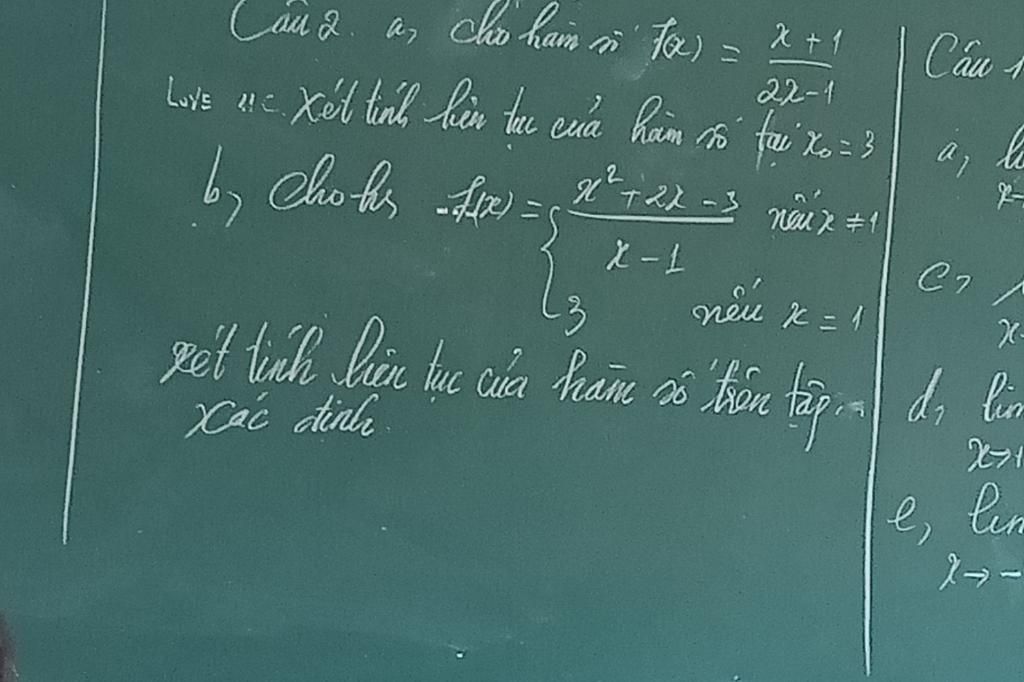 Câu 2. a, cho hàm số f(x) = x + 1 / 2x-1
Xét tính liên tục của hàm số tại x₀ = 3
b, Cho hs f(x) = { x² + 2x - 3 / x - 1 nếu x ≠ 1
3 nếu x = 1
xét tính liên tục của hàm số trên tập
xác định.
Câu
a,
c,
d, lim
x→1
e, lim
x→ -